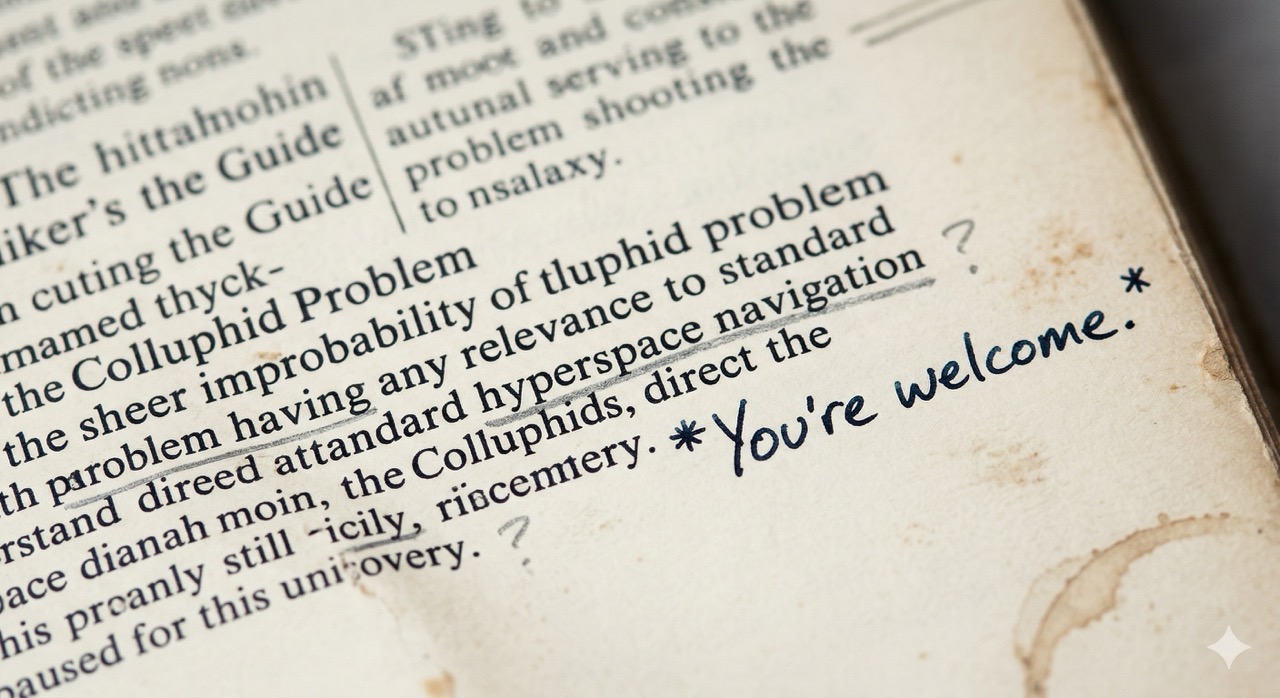 of the speet
ndicting nons.
The hittalnohin
iker's the Guide
n cuting the Guide
mamed thyck-
STing to
af moot and
autunal serving to the
problem shooting the
to nsalaxy.
the Colluphid Problem
the sheer improbability of tluphid problem
th problem having any relevance to standard
rstand direed attandard hyperspace navigation ?
pace dianah moin, the Colluphids, direct the
his preanly still -icily, riscemtery. *You're welcome.*
paused for this uni-overy. ?